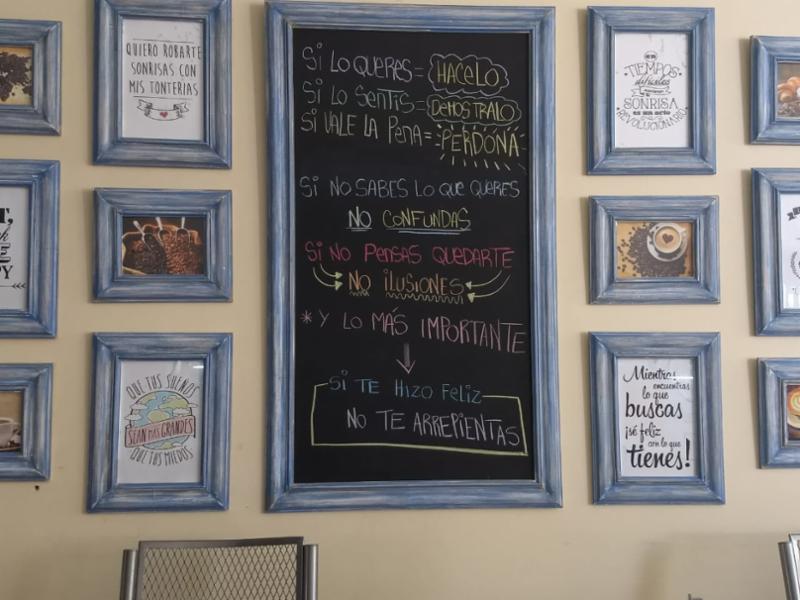 QUIERO ROBARTE
SONRISAS CON
MIS TONTERIAS
QUE TUS SUEÑOS
SEAN MAS GRANDES
QUE TUS MIEDOS
SI LO QUERES = HACELO
SI LO SENTIS = DEMOSTRALO
SI VALE LA PENA = PERDONA
SI NO SABES LO QUE QUERES
NO CONFUNDAS
SI NO PENSAS QUEDARTE
NO ILUSIONES
* Y LO MÁS IMPORTANTE
SI TE HIZO FELIZ
NO TE ARREPIENTAS
TIEMPOS
difíciles
SONRISA
es un acto
REVOLUCIONARIO
Mientras
encuentras
lo que
buscas
¡sé feliz
con lo que
tienes!